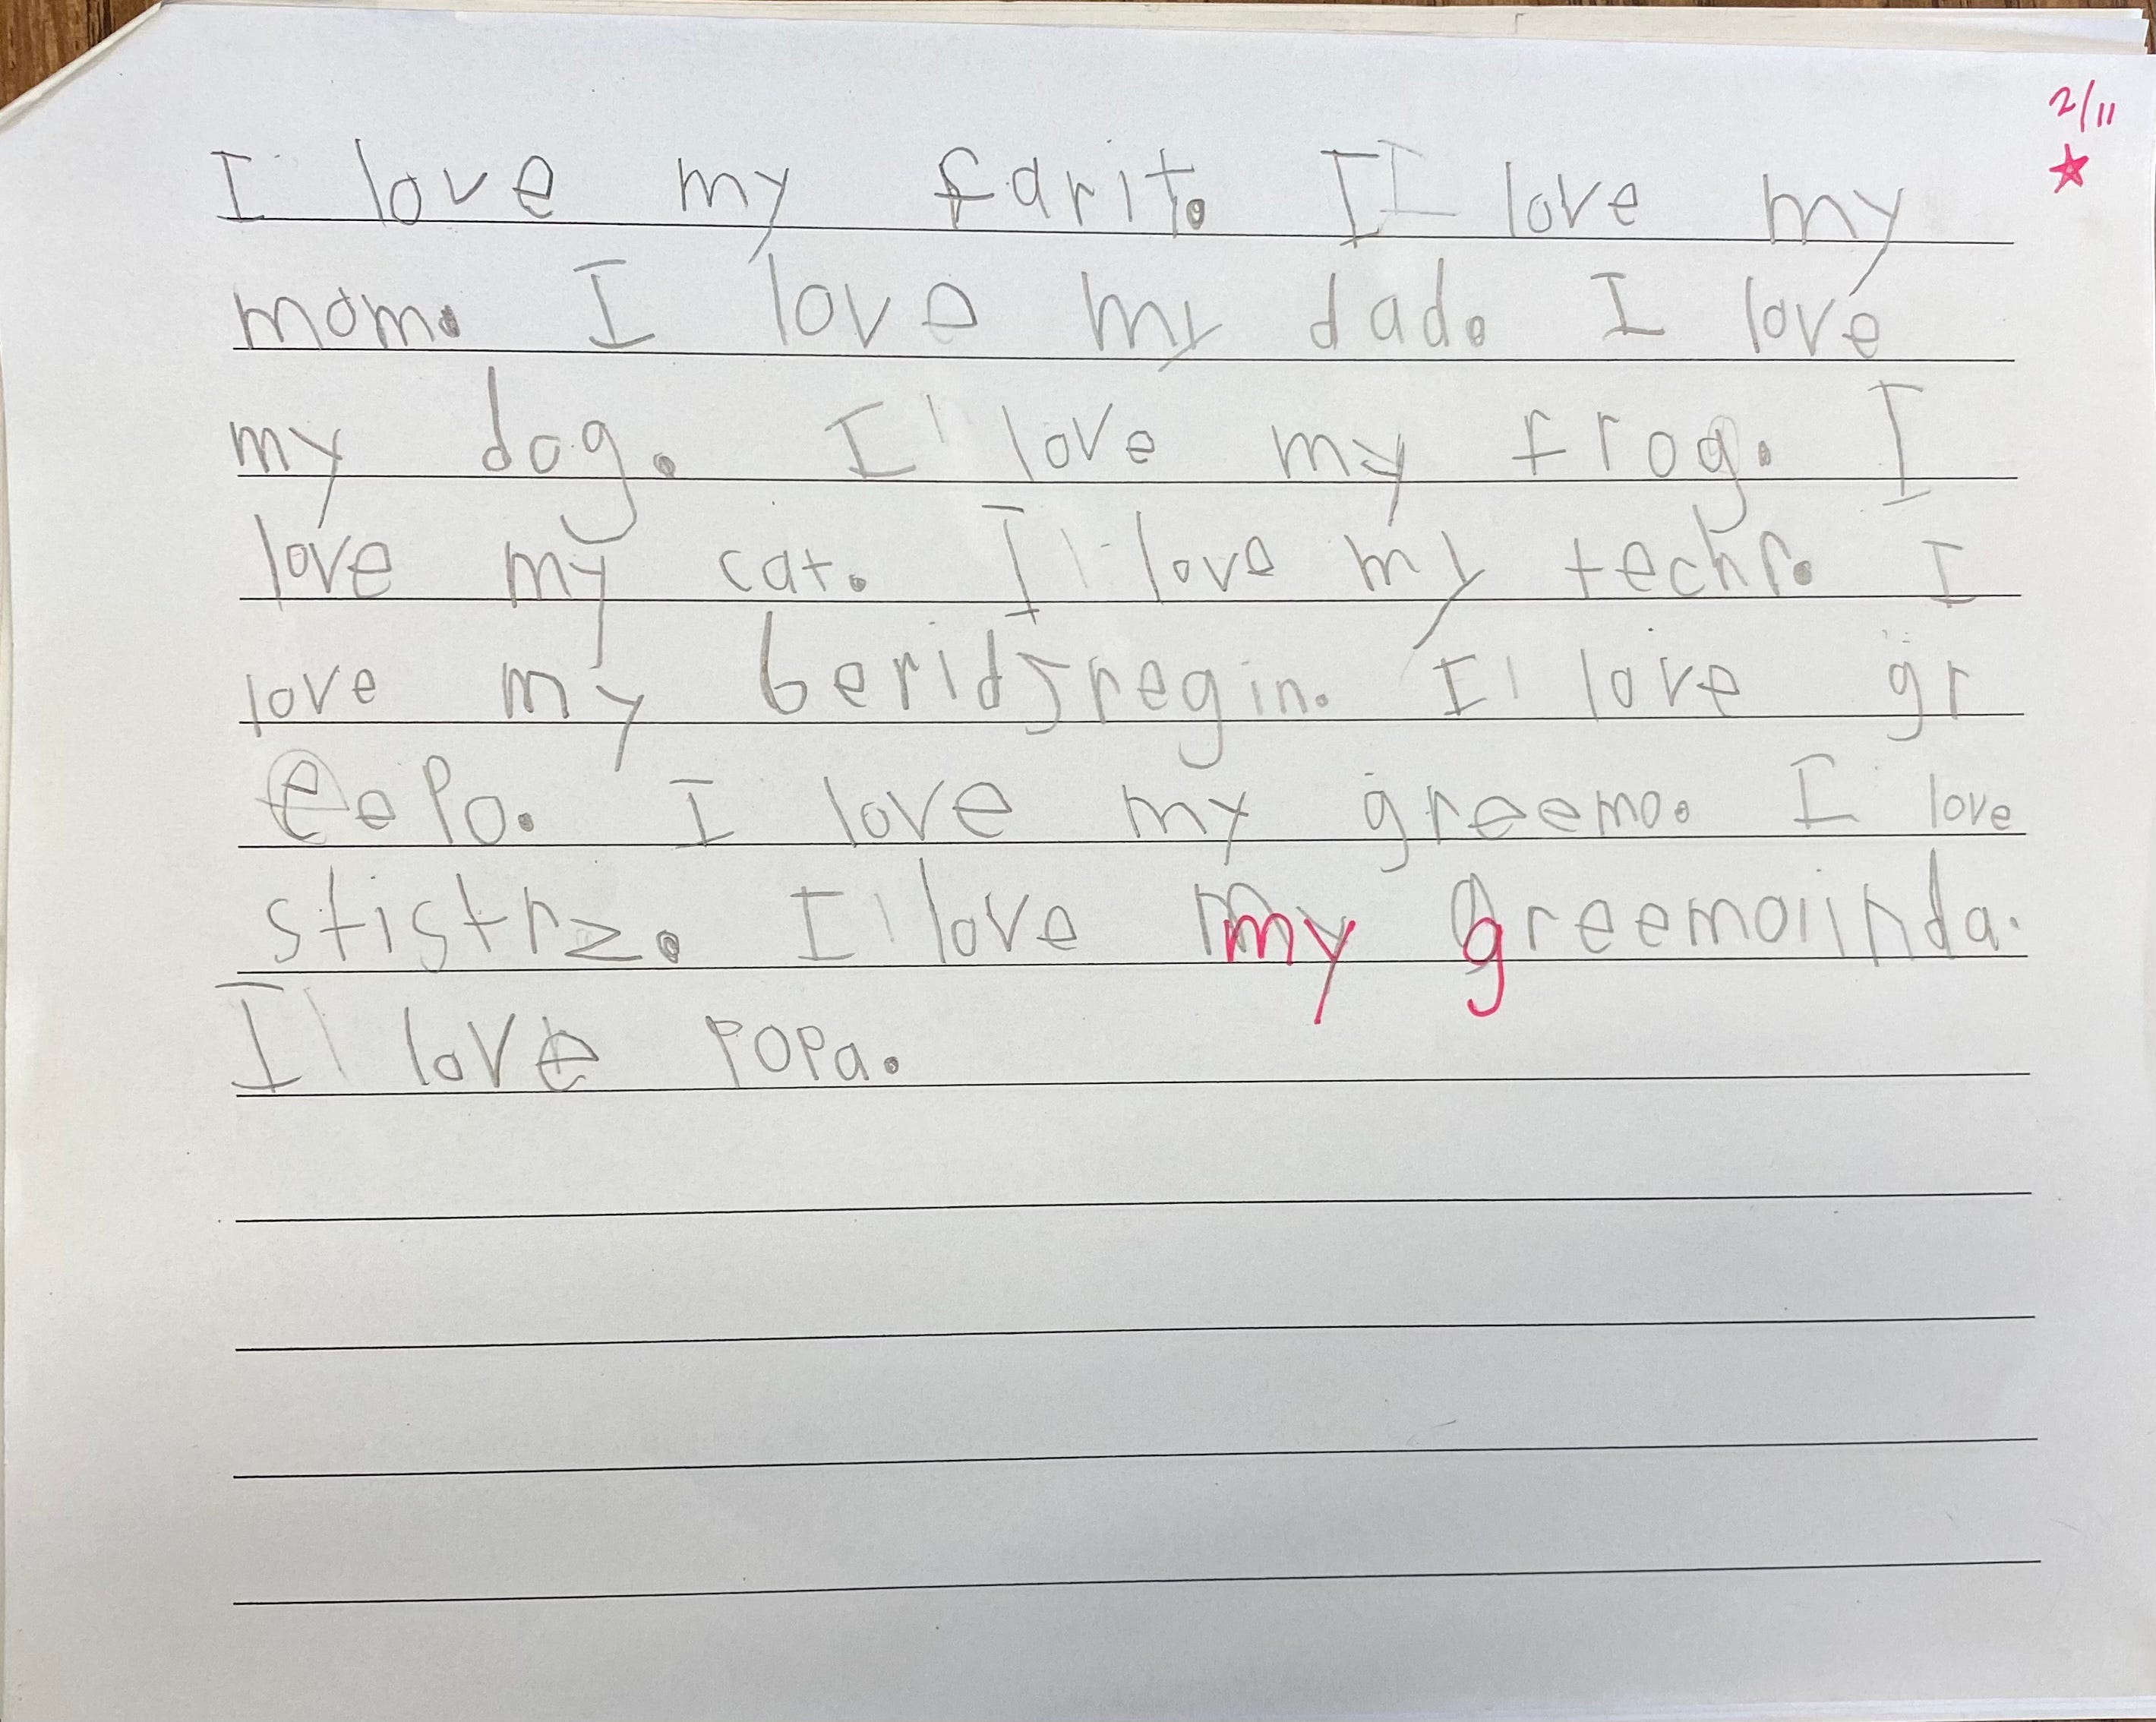 2/11
I love my farit. I I love my
mom. I love my dad. I love
my dog. I love my frog. I
love my cat. I love my techr. I
love my beridsregin. I love gr
eepo. I love my greemo. I love
stistrz. I love my greemoiinda.
I love popa.